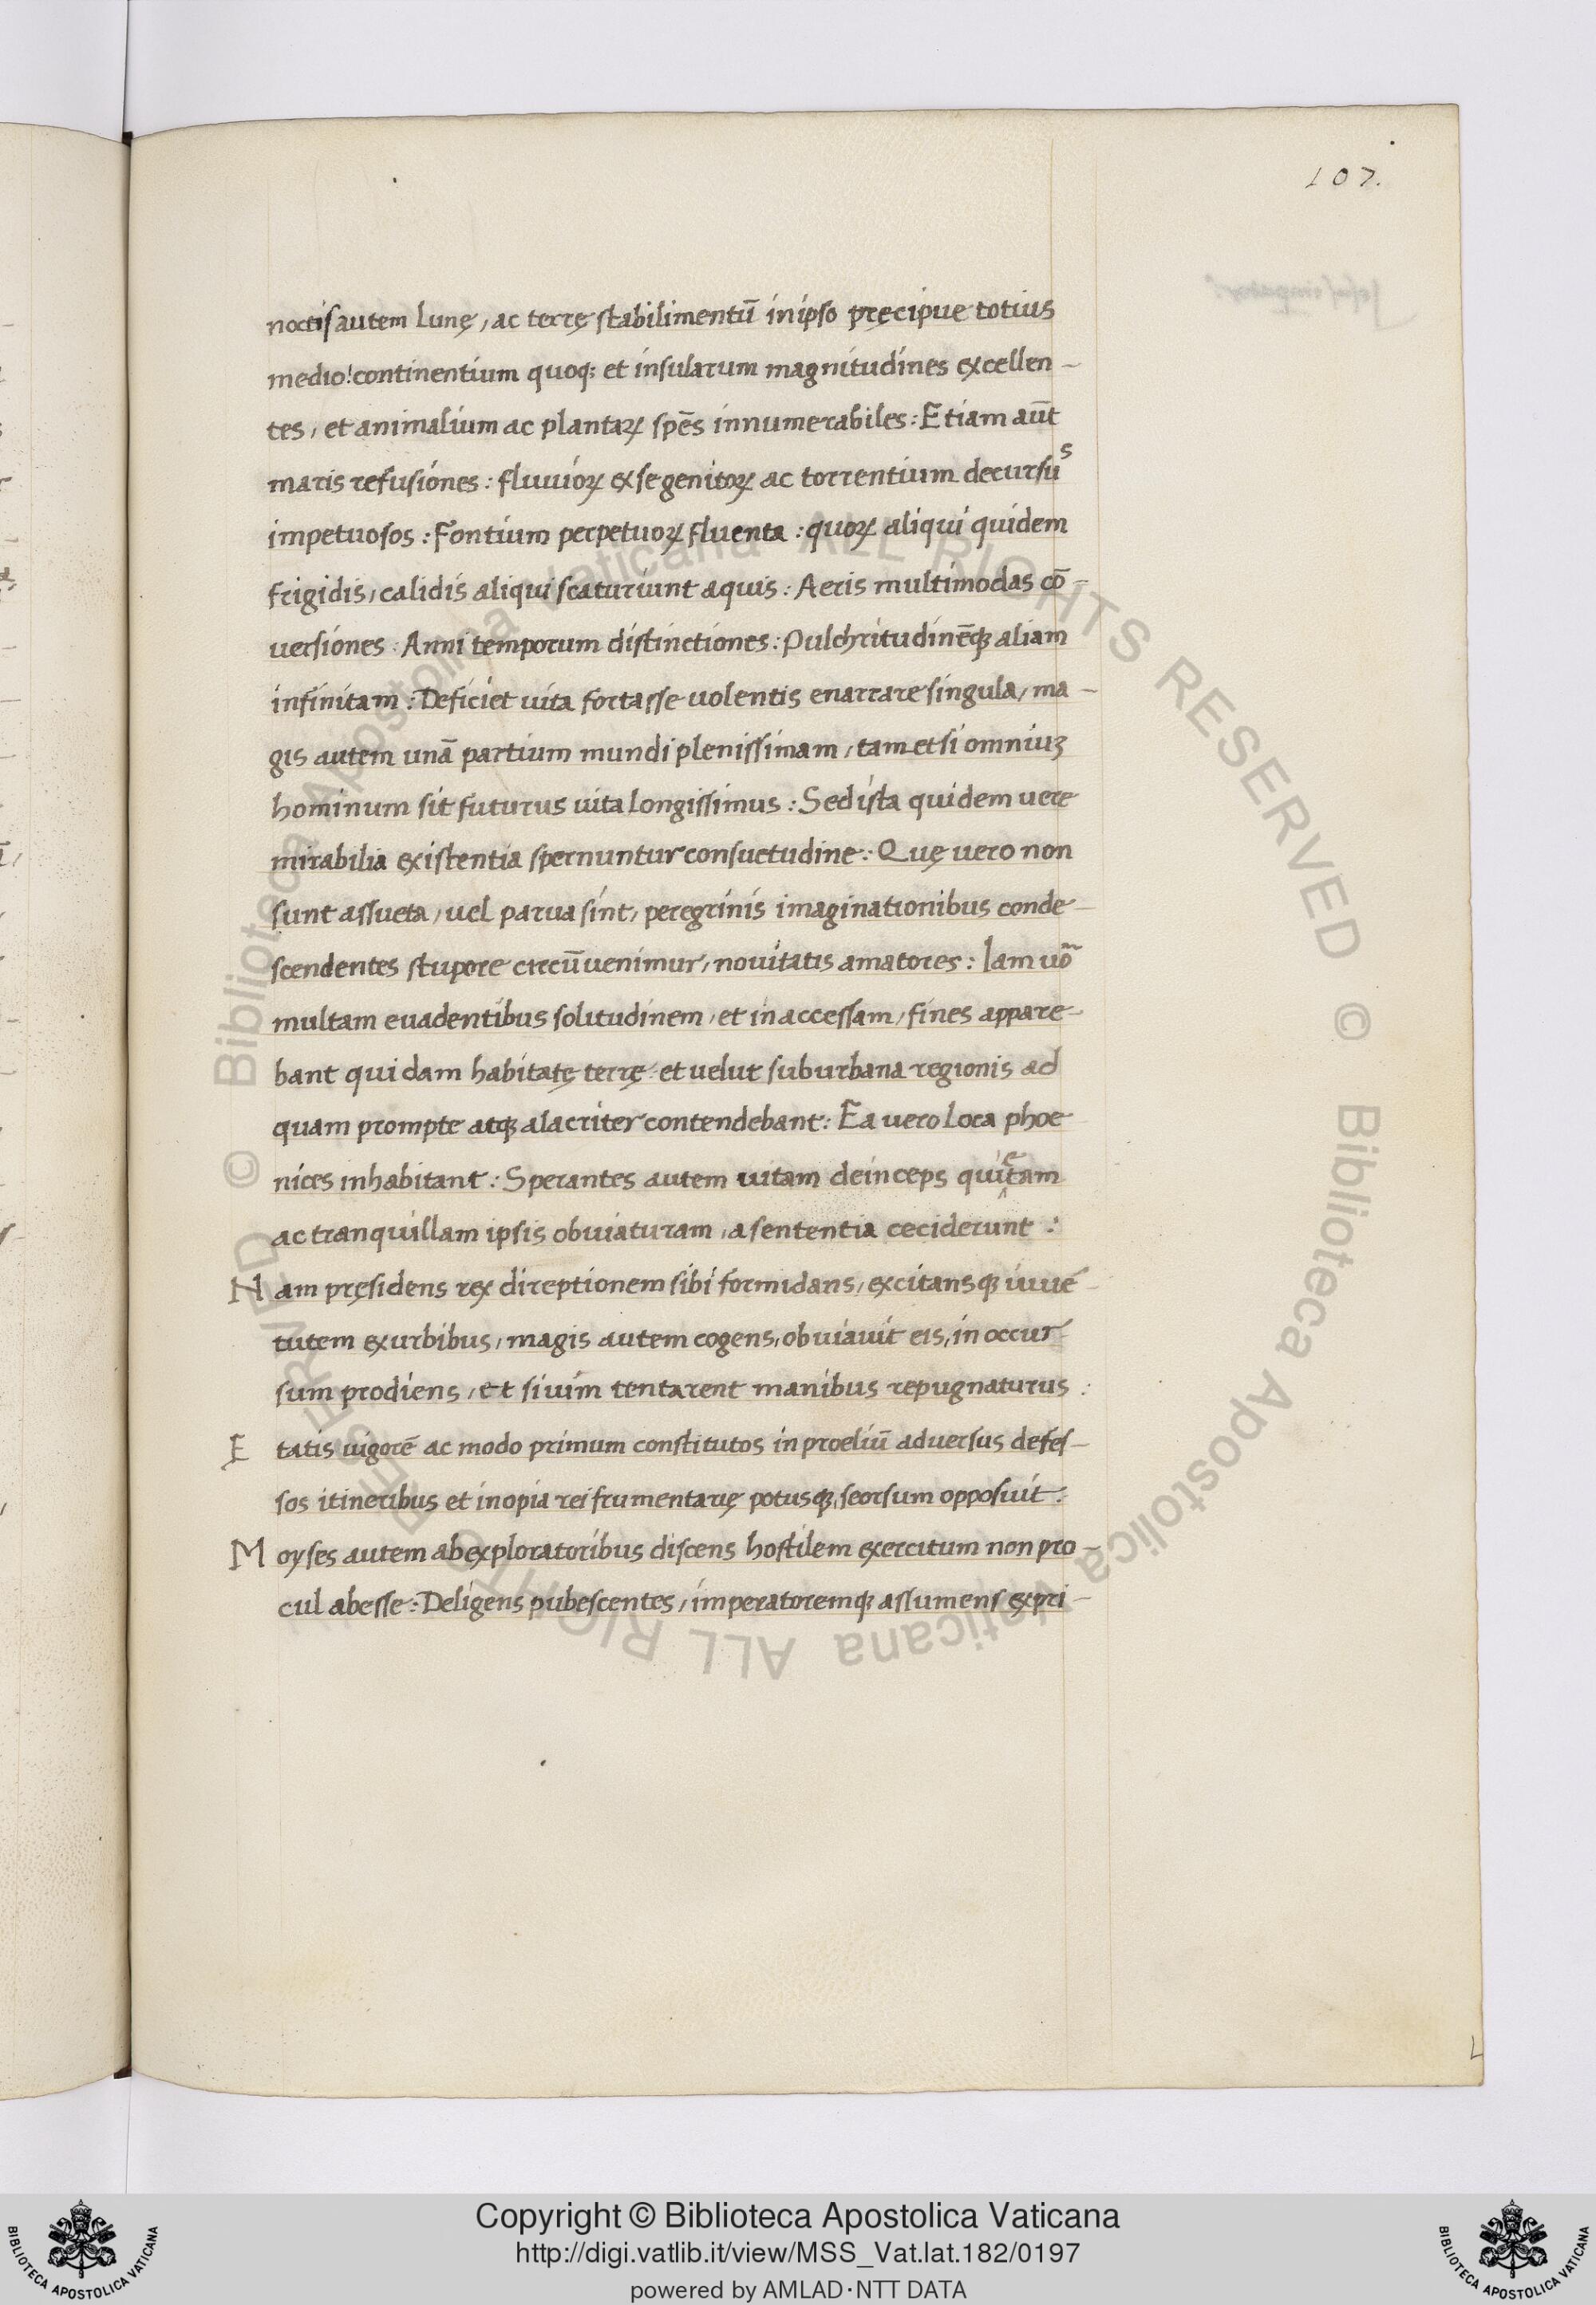 107.
noctis autem Lunę, ac terrę stabilimentū in ipso pręcipue totius
medio: continentium quoq; et insularum magnitudines excellen-
tes, et animalium ac plantaꝝ spēs innumerabiles: Etiam aūt
maris refusiones: fluuioꝝ ex se genitoꝝ ac torrentium decursus
impetuosos: Fontium perpetuoꝝ fluenta: quoꝝ aliqui quidem
frigidis, calidis aliqui scaturiunt aquis: Aeris multimodas cō-
uersiones: Anni temporum distinctiones: Pulchritudinēq; aliam
infinitam: Deficiet uita fortasse uolentis enarrare singula, ma-
gis autem unā partium mundi plenissimam, tametsi omniuꝫ
hominum sit futurus uita longissimus: Sed ista quidem uere
mirabilia existentia spernuntur consuetudine: Quę uero non
sunt assueta, uel parua sint, peregrinis imaginationibus conde-
scendentes stupore circūuenimur, nouitatis amatores: Iam uō
multam euadentibus solitudinem, et inaccessam, fines appare-
bant quidam habitatę terrę: et uelut suburbana regionis ad
quam prompte atq; alacriter contendebant: Ea uero loca phoe-
nices inhabitant: Sperantes autem uitam deinceps quietam
ac tranquillam ipsis obuiaturam, a sententia ceciderunt:
Nam pręsidens rex direptionem sibi formidans, excitansq; iuue-
tutem ex urbibus, magis autem cogens, obuiauit eis, in occur-
sum prodiens, et si uim tentarent manibus repugnaturus:
Ętatis uigorē ac modo primum constitutos in proeliū aduersus defes-
sos itineribus et inopia rei frumentarię potusq; seorsum opposuit:
Moyses autem ab exploratoribus discens hostilem exercitum non pro-
cul abesse: Deligens pubescentes, imperatoremq; assumens ex pri-
© Biblioteca Apostolica Vaticana ALL RIGHTS RESERVED © Biblioteca Apostolica Vaticana ALL RIGHTS RESERVED
Copyright © Biblioteca Apostolica Vaticana
http://digi.vatlib.it/view/MSS_Vat.lat.182/0197
powered by AMLAD·NTT DATA
BIBLIOTECA APOSTOLICA VATICANA
BIBLIOTECA APOSTOLICA VATICANA